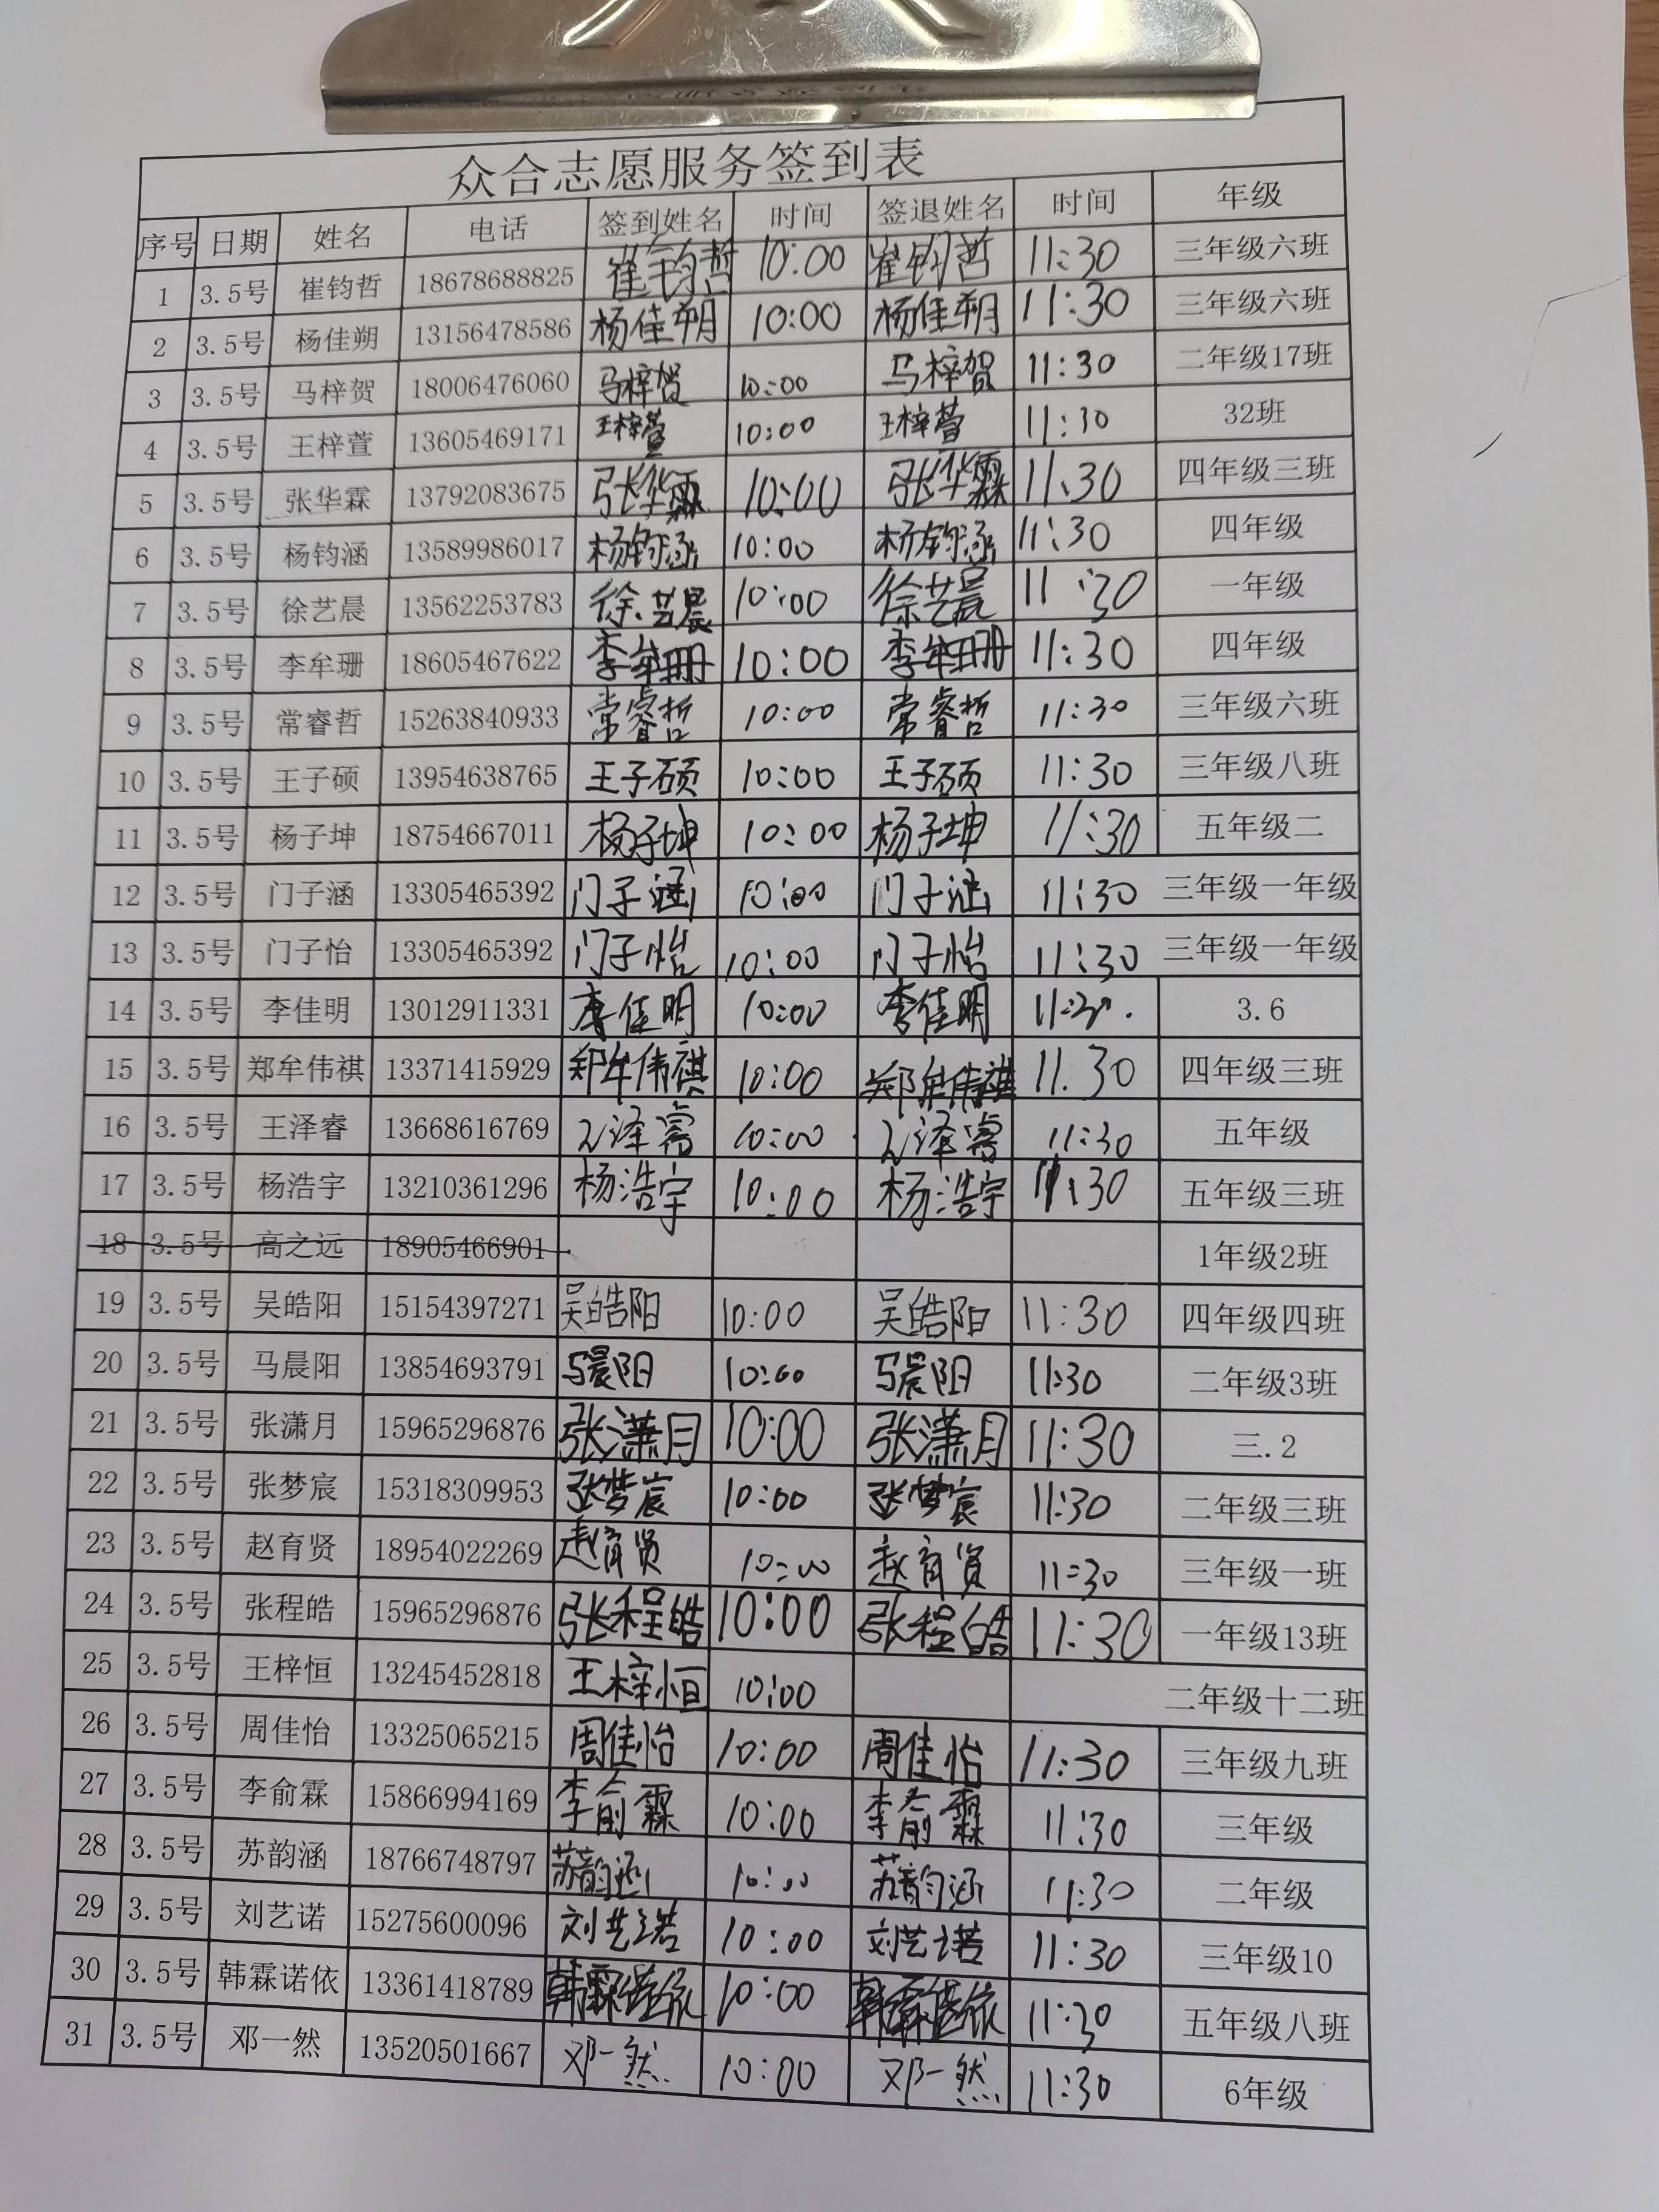 众合志愿服务签到表
序号 日期 姓名 电话 签到姓名 时间 签退姓名 时间 年级
1 3.5号 崔钧哲 18678688825 崔钧哲 10:00 崔钧哲 11:30 三年级六班
2 3.5号 杨佳朔 13156478586 杨佳朔 10:00 杨佳朔 11:30 三年级六班
3 3.5号 马梓贺 18006476060 马梓贺 10:00 马梓贺 11:30 二年级17班
4 3.5号 王梓萱 13605469171 王梓萱 10:00 王梓萱 11:30 32班
5 3.5号 张华霖 13792083675 张华霖 10:00 张华霖 11:30 四年级三班
6 3.5号 杨钧涵 13589986017 杨钧涵 10:00 杨钧涵 11:30 四年级
7 3.5号 徐艺晨 13562253783 徐艺晨 10:00 徐艺晨 11:30 一年级
8 3.5号 李牟珊 18605467622 李牟珊 10:00 李牟珊 11:30 四年级
9 3.5号 常睿哲 15263840933 常睿哲 10:00 常睿哲 11:30 三年级六班
10 3.5号 王子硕 13954638765 王子硕 10:00 王子硕 11:30 三年级八班
11 3.5号 杨子坤 18754667011 杨子坤 10:00 杨子坤 11:30 五年级二
12 3.5号 门子涵 13305465392 门子涵 10:00 门子涵 11:30 三年级一年级
13 3.5号 门子怡 13305465392 门子怡 10:00 门子怡 11:30 三年级一年级
14 3.5号 李佳明 13012911331 李佳明 10:00 李佳明 11:30. 3.6
15 3.5号 郑牟伟祺 13371415929 郑牟伟祺 10:00 郑牟伟祺 11.30 四年级三班
16 3.5号 王泽睿 13668616769 王泽睿 10:00 王泽睿 11:30 五年级
17 3.5号 杨浩宇 13210361296 杨浩宇 10:00 杨浩宇 11:30 五年级三班
18 3.5号 高之远 18905466901 1年级2班
19 3.5号 吴皓阳 15154397271 吴皓阳 10:00 吴皓阳 11:30 四年级四班
20 3.5号 马晨阳 13854693791 马晨阳 10:00 马晨阳 11:30 二年级3班
21 3.5号 张潇月 15965296876 张潇月 10:00 张潇月 11:30 三.2
22 3.5号 张梦宸 15318309953 张梦宸 10:00 张梦宸 11:30 二年级三班
23 3.5号 赵育贤 18954022269 赵育贤 10:00 赵育贤 11:30 三年级一班
24 3.5号 张程皓 15965296876 张程皓 10:00 张程皓 11:30 一年级13班
25 3.5号 王梓恒 13245452818 王梓恒 10:00 二年级十二班
26 3.5号 周佳怡 13325065215 周佳怡 10:00 周佳怡 11:30 三年级九班
27 3.5号 李俞霖 15866994169 李俞霖 10:00 李俞霖 11:30 三年级
28 3.5号 苏韵涵 18766748797 苏韵涵 10:00 苏韵涵 11:30 二年级
29 3.5号 刘艺诺 15275600096 刘艺诺 10:00 刘艺诺 11:30 三年级10
30 3.5号 韩霖诺依 13361418789 韩霖诺依 10:00 韩霖诺依 11:30 五年级八班
31 3.5号 邓一然 13520501667 邓一然 10:00 邓一然 11:30 6年级